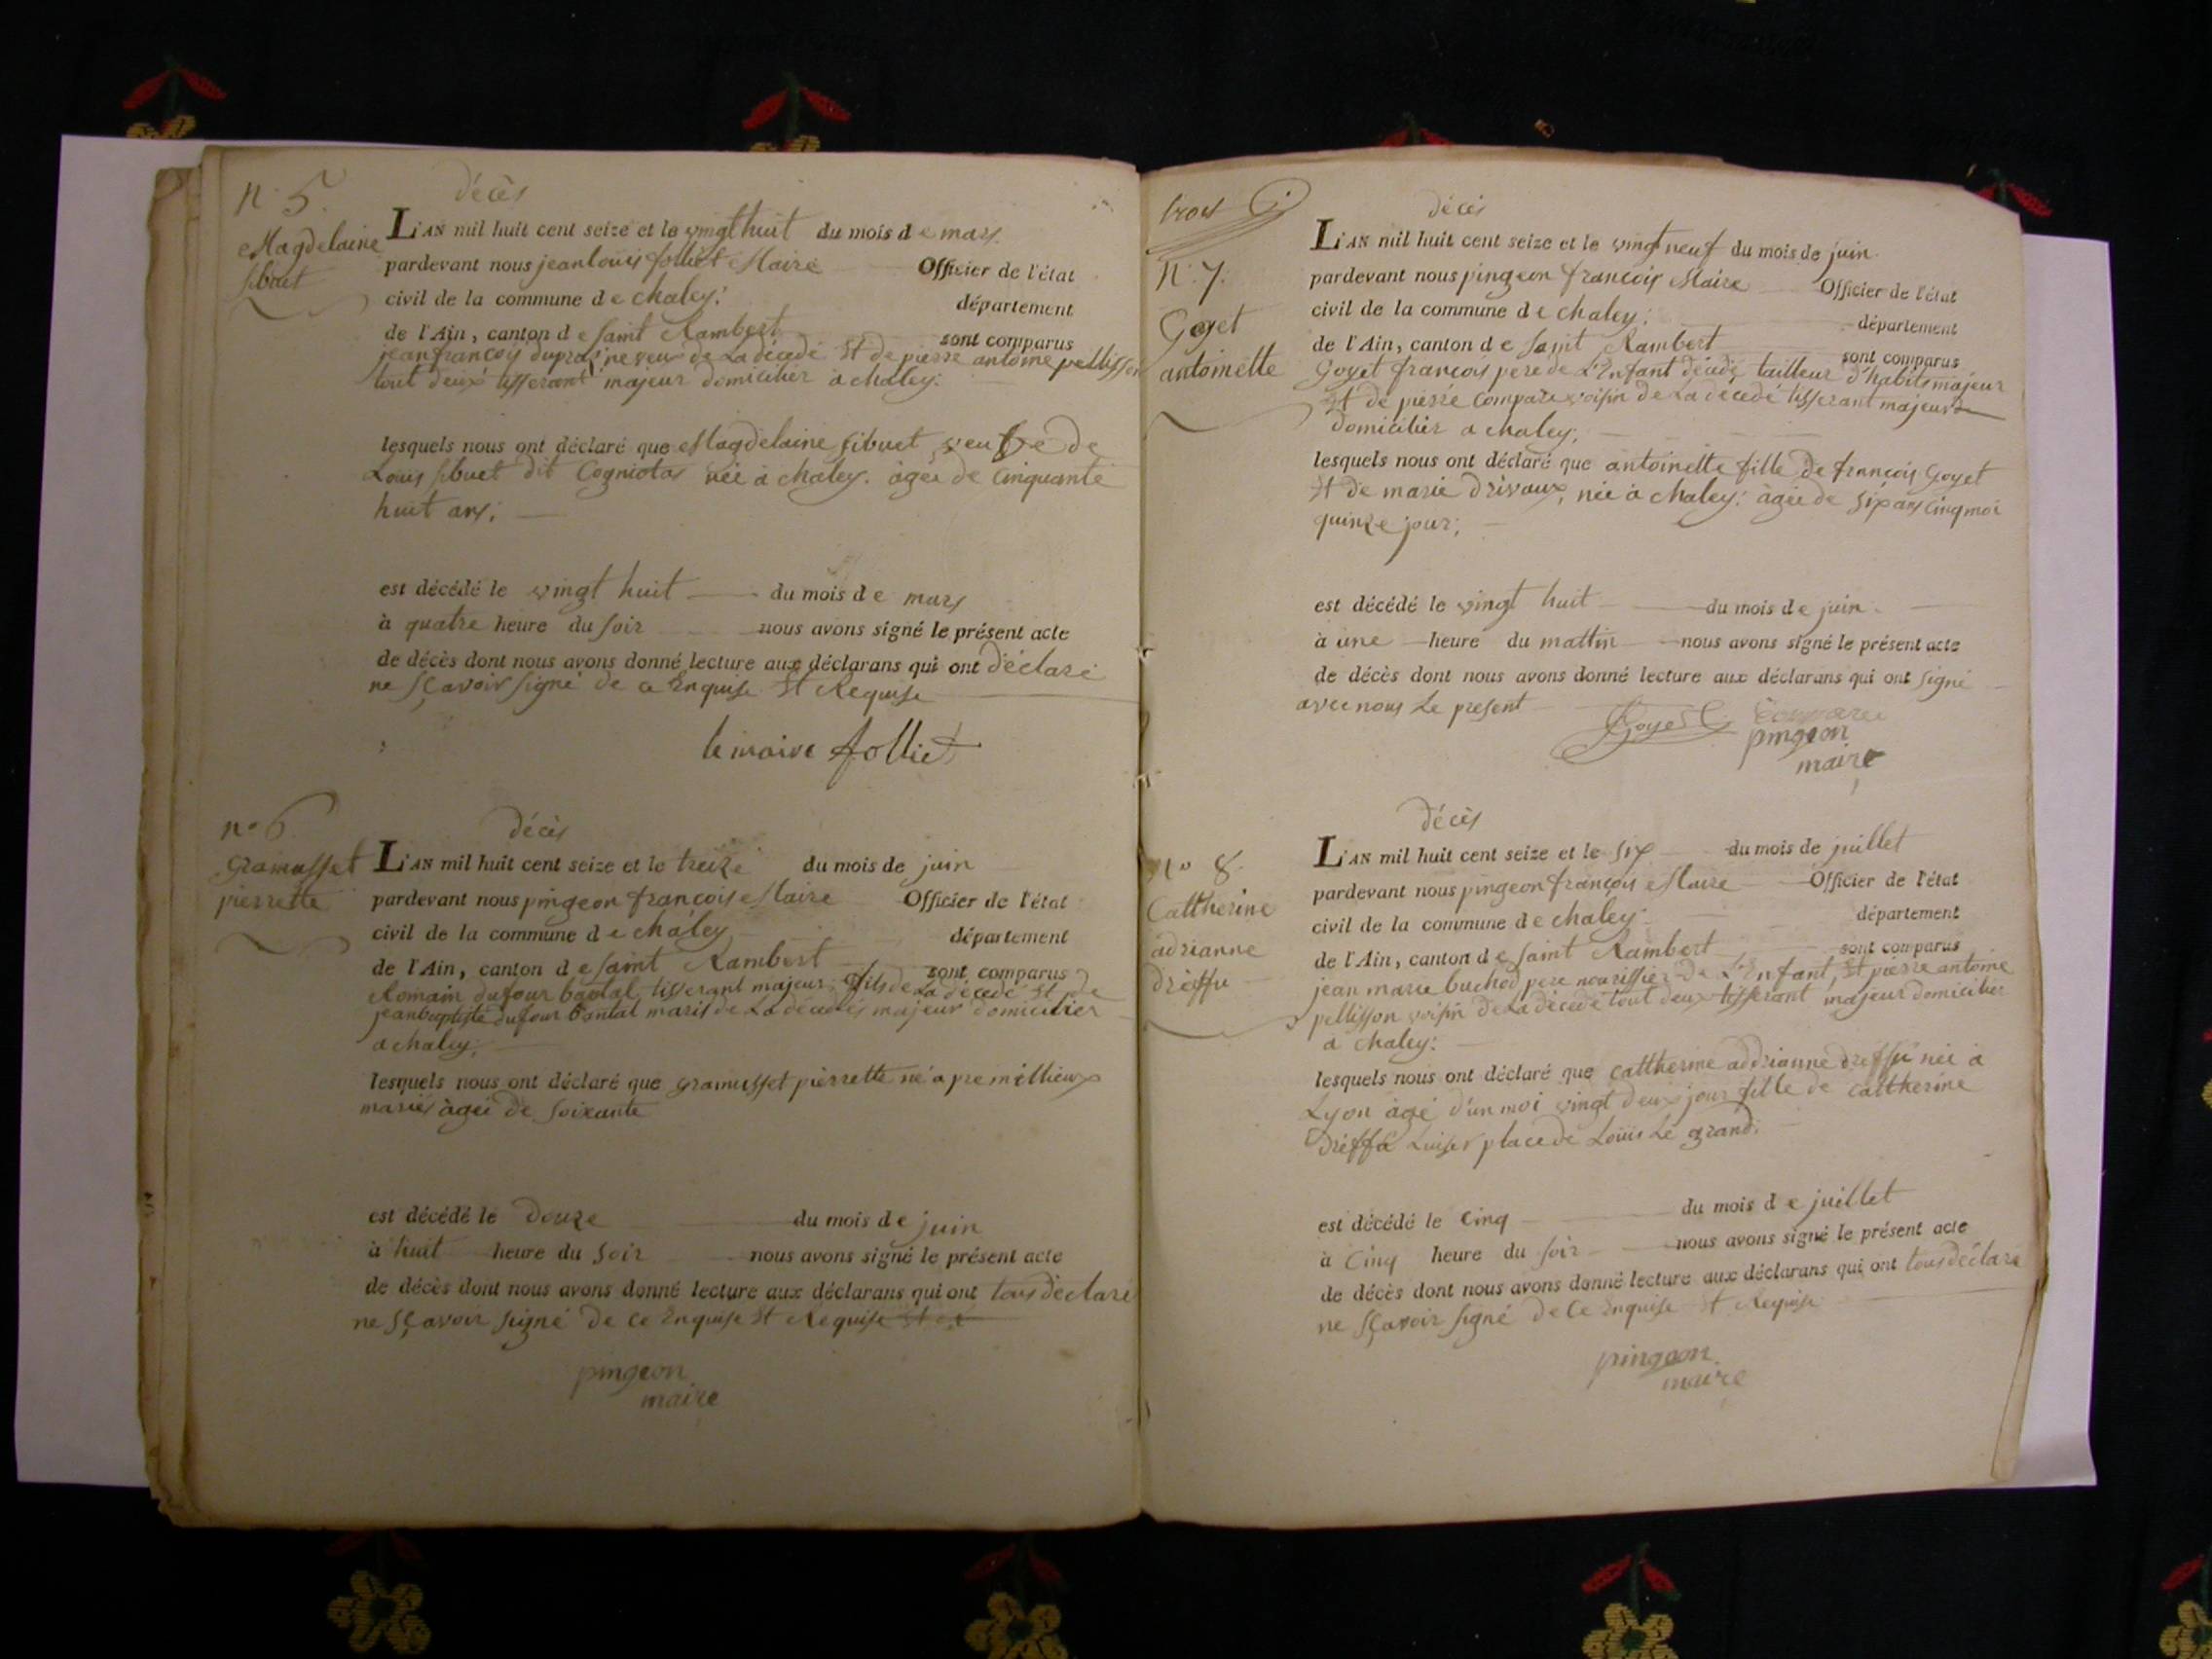 n° 5.
décès
Magdelaine
sibuet
L'AN mil huit cent seize et le vingt huit du mois de mars
pardevant nous jean louis folliet Maire Officier de l'état
civil de la commune de chaley. département
de l'Ain, canton de saint Rambert sont comparus
jean françois dupras neveux de La décedé Et de pierre antoine pellisson
tout deux tisserant majeur domicilier a chaley.
lesquels nous ont déclaré que Magdelaine sibuet veufve de
Louis sibuet dit Cogniotas née à chaley. âgée de Cinquante
huit ans;
est décédé le vingt huit du mois de mars
à quatre heure du soir nous avons signé le présent acte
de décès dont nous avons donné lecture aux déclarans qui ont déclaré
ne sçavoir signé de ce Enquise Et Requise
le maire folliet
n° 6
décès
gramusset
pierrette
L'AN mil huit cent seize et le treize du mois de juin
pardevant nous pingeon françois Maire Officier de l'état
civil de la commune de chaley département
de l'Ain, canton de saint Rambert sont comparus
Romain dufour bantal tisserant majeur fils de La décedé Et de
jean baptiste dufour bantal maris de La décedés majeur domicilier
a chaley;
lesquels nous ont déclaré que gramusset pierrette né a premillieux
mariés âgée de soixante
est décédé le douze du mois de juin
à huit heure du soir nous avons signé le présent acte
de décès dont nous avons donné lecture aux déclarans qui ont tous déclaré
ne sçavoir signé de ce Enquise Et Requise
pingeon
maire
trois
décès
n° 7.
Goyet
antoinette
L'AN mil huit cent seize et le vingt neuf du mois de juin
pardevant nous pingeon françois Maire Officier de l'état
civil de la commune de chaley. département
de l'Ain, canton de saint Rambert sont comparus
Goyet françois pere de L'Enfant décedé tailleur d'habits majeur
Et de pierre Compare voisin de La décedé tisserant majeur
domicilier a chaley;
lesquels nous ont déclaré que antoinette fille de françois Goyet
Et de marie drivaux, née à chaley: âgée de six ans cinq moi
quinze jour;
est décédé le vingt huit du mois de juin
à une heure du mattin nous avons signé le présent acte
de décès dont nous avons donné lecture aux déclarans qui ont signé
avec nous Le present
Goyet Compare
pingeon
maire
décès
n° 8.
Cattherine
adrianne
dreffu
L'AN mil huit cent seize et le six du mois de juillet
pardevant nous pingeon françois Maire Officier de l'état
civil de la commune de chaley. département
de l'Ain, canton de saint Rambert sont comparus
jean marie buchod pere nourissier de L'Enfant, Et pierre antoine
pellisson voisin de La décedé tout deux tisserant majeur domicilier
a chaley:
lesquels nous ont déclaré que cattherine addrianne dreffu née à
Lyon agé d'un moi vingt deux jour fille de cattherine
dreffa place de Loüis Le grand.
est décédé le Cinq du mois de juillet
à Cinq heure du soir nous avons signé le présent acte
de décès dont nous avons donné lecture aux déclarans qui ont tous déclaré
ne sçavoir signé de ce Enquise Et Requise
pingeon
maire